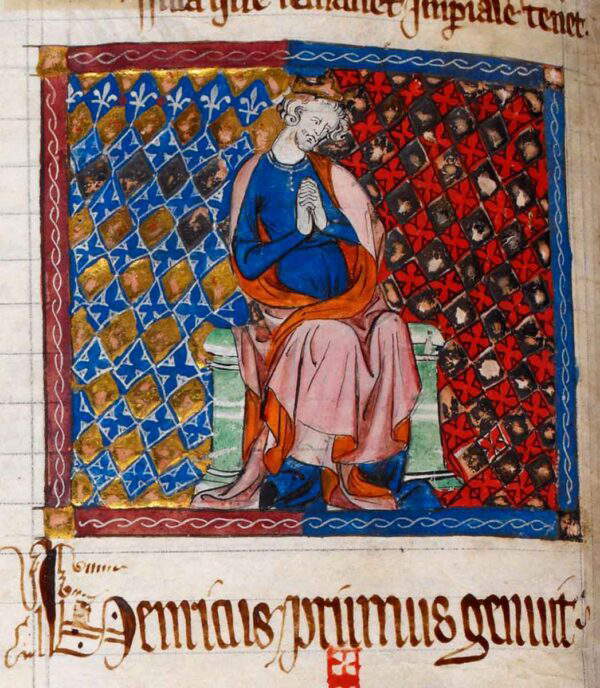 illa que remanet Imꝑiale tenet.
Henricus primus genuit